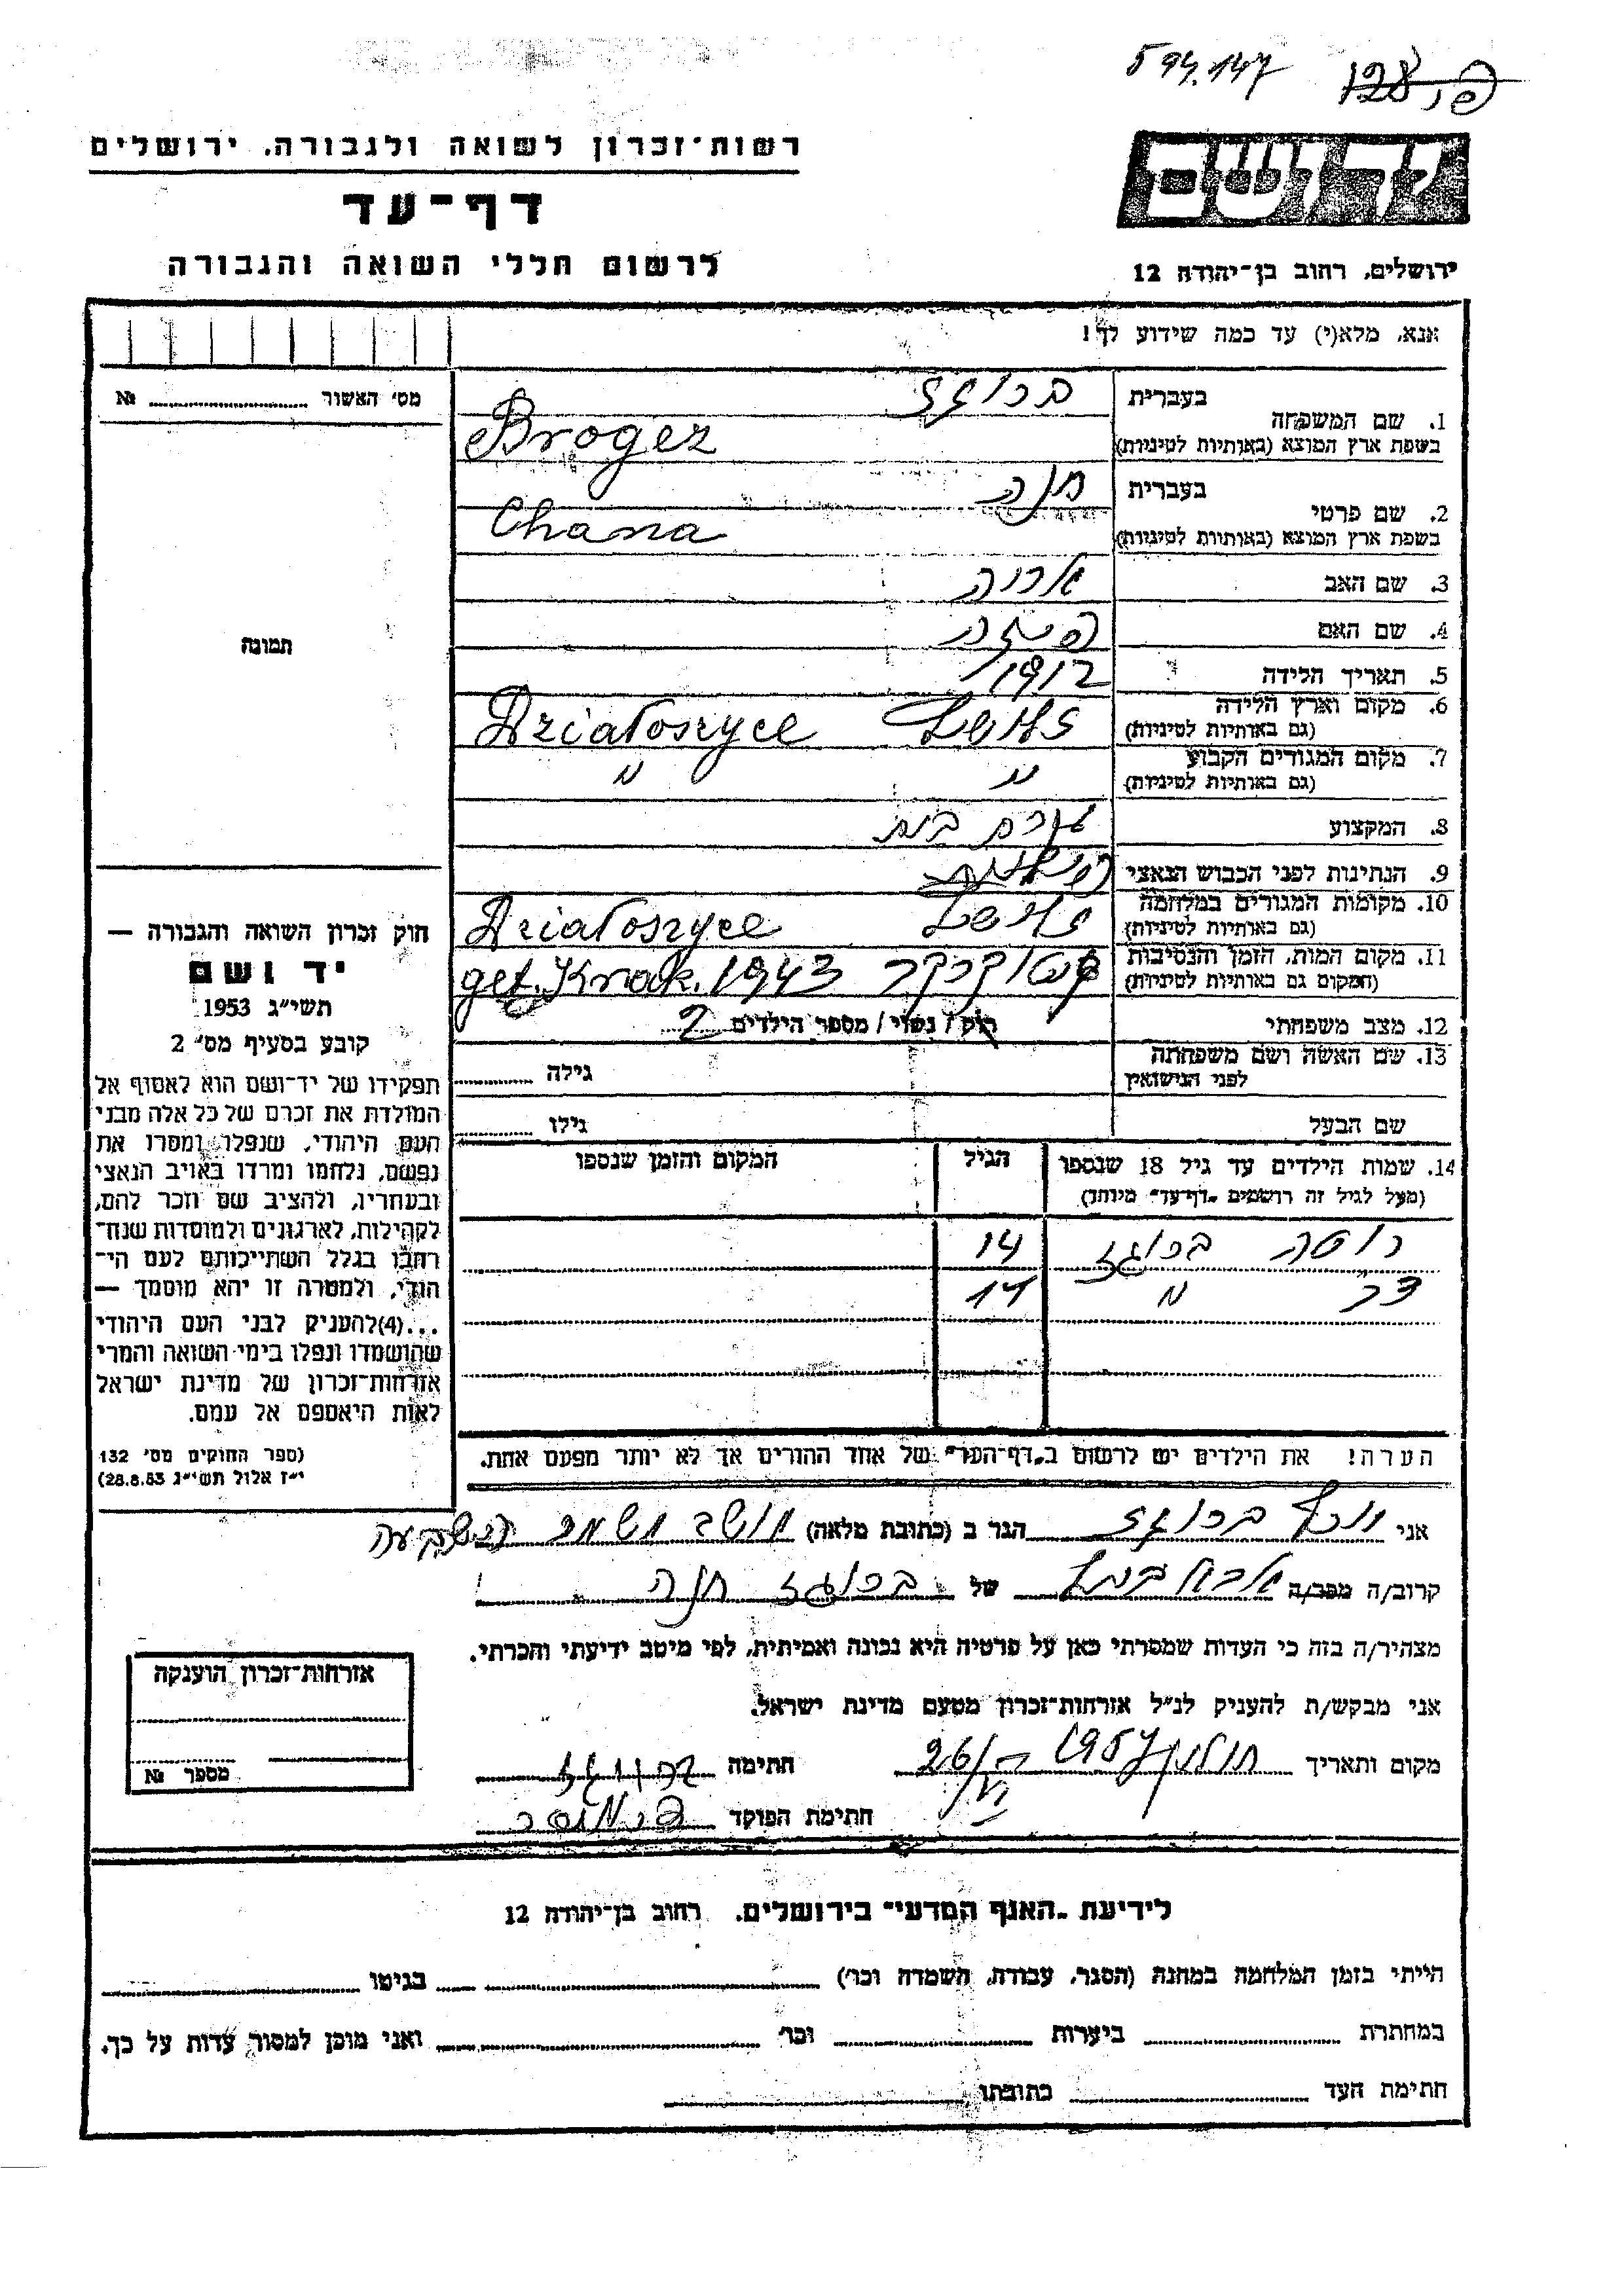 594.147
128
רשות־זכרון לשואה ולגבורה, ירושלים
דף־עד
לרשום חללי השואה והגבורה
יד ושם
ירושלים, רחוב בן־יהודה 12
אנא, מלא(י) עד כמה שידוע לך!
מס׳ האשור № 
1. שם המשפחה
בעברית ברוגז
בשפת ארץ המוצא (באותיות לטיניות) Brogez
2. שם פרטי
בעברית חנה
בשפת ארץ המוצא (באותיות לטיניות) Chana
3. שם האב
4. שם האם
5. תאריך הלידה 1912
6. מקום וארץ הלידה
(גם באותיות לטיניות) Działoszyce
7. מקום המגורים הקבוע
(גם באותיות לטיניות) " "
8. המקצוע עקרת בית
9. הנתינות לפני הכבוש הנאצי
10. מקומות המגורים במלחמה
(גם באותיות לטיניות) Działoszyce
11. מקום המות, הזמן והנסיבות
(המקום גם באותיות לטיניות) get. Krak. 1943
12. מצב משפחתי רוק / נשוי / מספר הילדים 2
13. שם האשה ושם משפחתה
לפני הנישואין גילה
שם הבעל גילו
14. שמות הילדים עד גיל 18 שנספו הגיל המקום והזמן שנספו
(מעל לגיל זה רושמים „דף־עד״ מיוחד)
ברוגז 14
" 11
הערה! את הילדים יש לרשום ב„דף־העד״ של אחד ההורים אך לא יותר מפעם אחת.
תמונה
חוק זכרון השואה והגבורה —
יד ושם
תשי״ג 1953
קובע בסעיף מס׳ 2
תפקידו של יד־ושם הוא לאסוף אל
המולדת את זכרם של כל אלה מבני
העם היהודי, שנפלו ומסרו את
נפשם, נלחמו ומרדו באויב הנאצי
ובעוזריו, ולהציב שם וזכר להם,
לקהילות, לארגונים ולמוסדות שנח־
רבו בגלל השתייכותם לעם הי־
הודי, ולמטרה זו יהא מוסמך —
...(4)להעניק לבני העם היהודי
שהושמדו ונפלו בימי השואה והמרי
אזרחות־זכרון של מדינת ישראל
לאות היאספם אל עמם.
(ספר החוקים מס׳ 132
י״ז אלול תשי״ג 28.8.53)
אני ברוגז הגר ב (כתובת מלאה) מושב משמר השבעה
קרוב/ה מכר/ה של ברוגז חנה
מצהיר/ה בזה כי העדות שמסרתי כאן על פרטיה היא נכונה ואמיתית, לפי מיטב ידיעתי והכרתי.
אני מבקש/ת להעניק לנ״ל אזרחות־זכרון מטעם מדינת ישראל.
מקום ותאריך חולון 1957 חתימה
חתימת הפוקד
אזרחות־זכרון הוענקה
מספר №
לידיעת „האגף המדעי״ בירושלים, רחוב בן־יהודה 12
הייתי בזמן המלחמה במחנה (הסגר, עבודה, השמדה וכו׳) בגיטו
במחתרת ביערות וכו׳ ואני מוכן למסור עדות על כך.
חתימת העד כתובתו